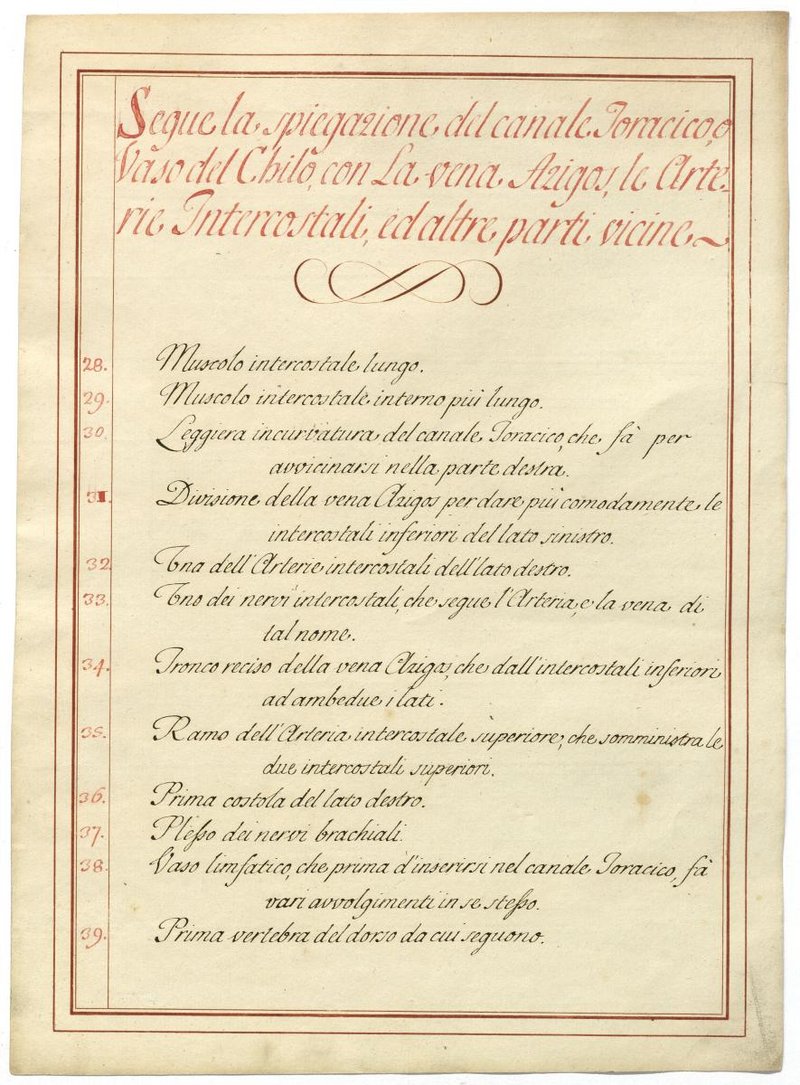 Segue la spiegazione del canale Toracico, o
Vaso del Chilo, con La vena Azigos, le Arte-
rie Intercostali, ed altre parti vicine ~
28. Muscolo intercostale lungo.
29. Muscolo intercostale interno più lungo.
30. Leggiera incurvatura del canale Toracico, che fà per
avvicinarsi nella parte destra.
31. Divisione della vena Azigos per dare più comodamente le
intercostali inferiori del lato sinistro.
32. Una dell'Arterie intercostali dell'lato destro.
33. Uno dei nervi intercostali, che segue l'Arteria, e la vena di
tal nome.
34. Tronco reciso della vena Azigos, che dall'intercostali inferiori
ad ambedue i lati.
35. Ramo dell'Arteria intercostale superiore, che somministra le
due intercostali superiori.
36. Prima costola del lato destro.
37. Plesso dei nervi brachiali.
38. Vaso limfatico, che prima d'inserirsi nel canale Toracico, fà
vari avvolgimenti in se stesso.
39. Prima vertebra del dorso da cui seguono.